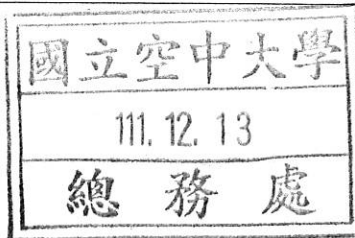 國立空中大學
111.12.13
總務處